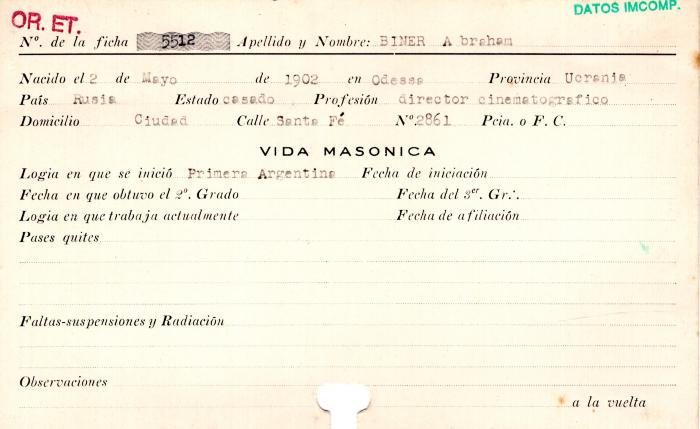 OR. ET.
DATOS IMCOMP.
Nº. de la ficha 5512 Apellido y Nombre: BINER A braham
Nacido el 2 de Mayo de 1902 en Odessa Provincia Ucrania
País Rusia Estado casado Profesión director cinematografico
Domicilio Ciudad Calle Santa Fé Nº. 2861 Pcia. o F. C.
VIDA MASONICA
Logia en que se inició Primera Argentina Fecha de iniciación
Fecha en que obtuvo el 2º. Grado Fecha del 3er. Gr∴
Logia en que trabaja actualmente Fecha de afiliación
Pases quites
Faltas-suspensiones y Radiación
Observaciones
a la vuelta